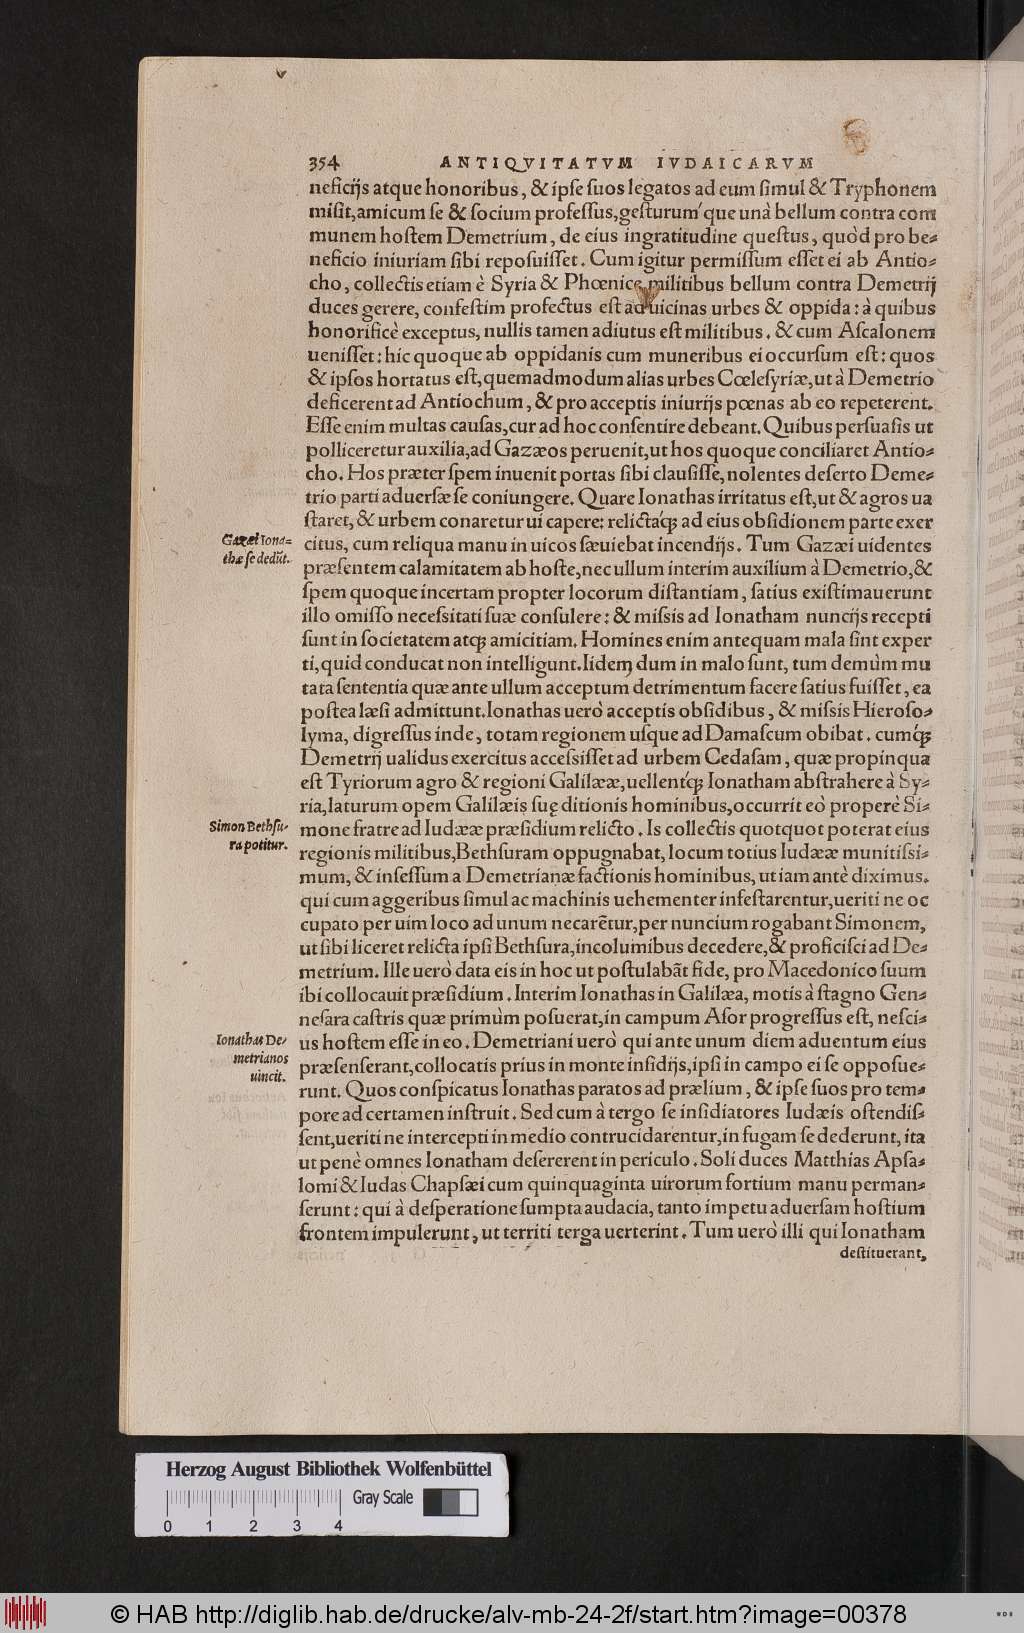 354 ANTIQVITATVM IVDAICARVM
neficijs atque honoribus, & ipse suos legatos ad eum simul & Tryphonem
misit, amicum se & socium professus, gesturum´que unà bellum contra com
munem hostem Demetrium, de eius ingratitudine questus, quòd pro be-
neficio iniuriam sibi reposuisset. Cum igitur permissum esset ei ab Antio-
cho, collectis etiam è Syria & Phœnice militibus bellum contra Demetrij
duces gerere, confestim profectus est ad uicinas urbes & oppida: à quibus
honorificè exceptus, nullis tamen adiutus est militibus. & cum Ascalonem
uenisset: hic quoque ab oppidanis cum muneribus ei occursum est: quos
& ipsos hortatus est, quemadmodum alias urbes Cœlesyriæ, ut à Demetrio
deficerent ad Antiochum, & pro acceptis iniurijs pœnas ab eo repeterent.
Esse enim multas causas, cur ad hoc consentire debeant. Quibus persuasis ut
polliceretur auxilia, ad Gazæos peruenit, ut hos quoque conciliaret Antio-
cho. Hos præter spem inuenit portas sibi clausisse, nolentes deserto Deme-
trio parti aduersæ se coniungere. Quare Ionathas irritatus est, ut & agros ua
staret, & urbem conaretur ui capere: relicta´q; ad eius obsidionem parte exer
Gazæi Iona-
thæ se dedūt.
citus, cum reliqua manu in uicos sæuiebat incendijs. Tum Gazæi uidentes
præsentem calamitatem ab hoste, nec ullum interim auxilium à Demetrio, &
spem quoque incertam propter locorum distantiam, satius existimauerunt
illo omisso necessitati suæ consulere: & missis ad Ionatham nuncijs recepti
sunt in societatem atq; amicitiam. Homines enim antequam mala sint exper
ti, quid conducat non intelligunt. Iidem dum in malo sunt, tum demùm mu
tata sententia quæ ante ullum acceptum detrimentum facere satius fuisset, ea
postea læsi admittunt. Ionathas uerò acceptis obsidibus, & missis Hieroso-
lyma, digressus inde, totam regionem usque ad Damascum obibat. cum´q;
Demetrij ualidus exercitus accessisset ad urbem Cedasam, quæ propinqua
est Tyriorum agro & regioni Galilææ, uellent´q; Ionatham abstrahere à Sy-
ria, laturum opem Galilæis suę ditionis hominibus, occurrit eò properè Si-
Simon Bethsu-
ra potitur.
mone fratre ad Iudææ præsidium relicto. Is collectis quotquot poterat eius
regionis militibus, Bethsuram oppugnabat, locum totius Iudææ munitissi-
mum, & insessum a Demetrianæ factionis hominibus, ut iam antè diximus.
qui cum aggeribus simul ac machinis uehementer infestarentur, ueriti ne oc
cupato per uim loco ad unum necarētur, per nuncium rogabant Simonem,
ut sibi liceret relicta ipsi Bethsura, incolumibus decedere, & proficisci ad De-
metrium. Ille uerò data eis in hoc ut postulabāt fide, pro Macedonico suum
ibi collocauit præsidium. Interim Ionathas in Galilæa, motis à stagno Gen-
nesara castris quæ primùm posuerat, in campum Asor progressus est, nesci-
Ionathas De-
metrianos
uincit.
us hostem esse in eo. Demetriani uerò qui ante unum diem aduentum eius
præsenserant, collocatis prius in monte insidijs, ipsi in campo ei se opposue-
runt. Quos conspicatus Ionathas paratos ad prælium, & ipse suos pro tem-
pore ad certamen instruit. Sed cum à tergo se insidiatores Iudæis ostendis-
sent, ueriti ne intercepti in medio contrucidarentur, in fugam se dederunt, ita
ut penè omnes Ionatham desererent in periculo. Soli duces Matthias Apsa-
lomi & Iudas Chapsæi cum quinquaginta uirorum fortium manu perman-
serunt: qui à desperatione sumpta audacia, tanto impetu aduersam hostium
frontem impulerunt, ut territi terga uerterint. Tum uerò illi qui Ionatham
destituerant,
Herzog August Bibliothek Wolfenbüttel
Gray Scale
0 1 2 3 4
© HAB http://diglib.hab.de/drucke/alv-mb-24-2f/start.htm?image=00378